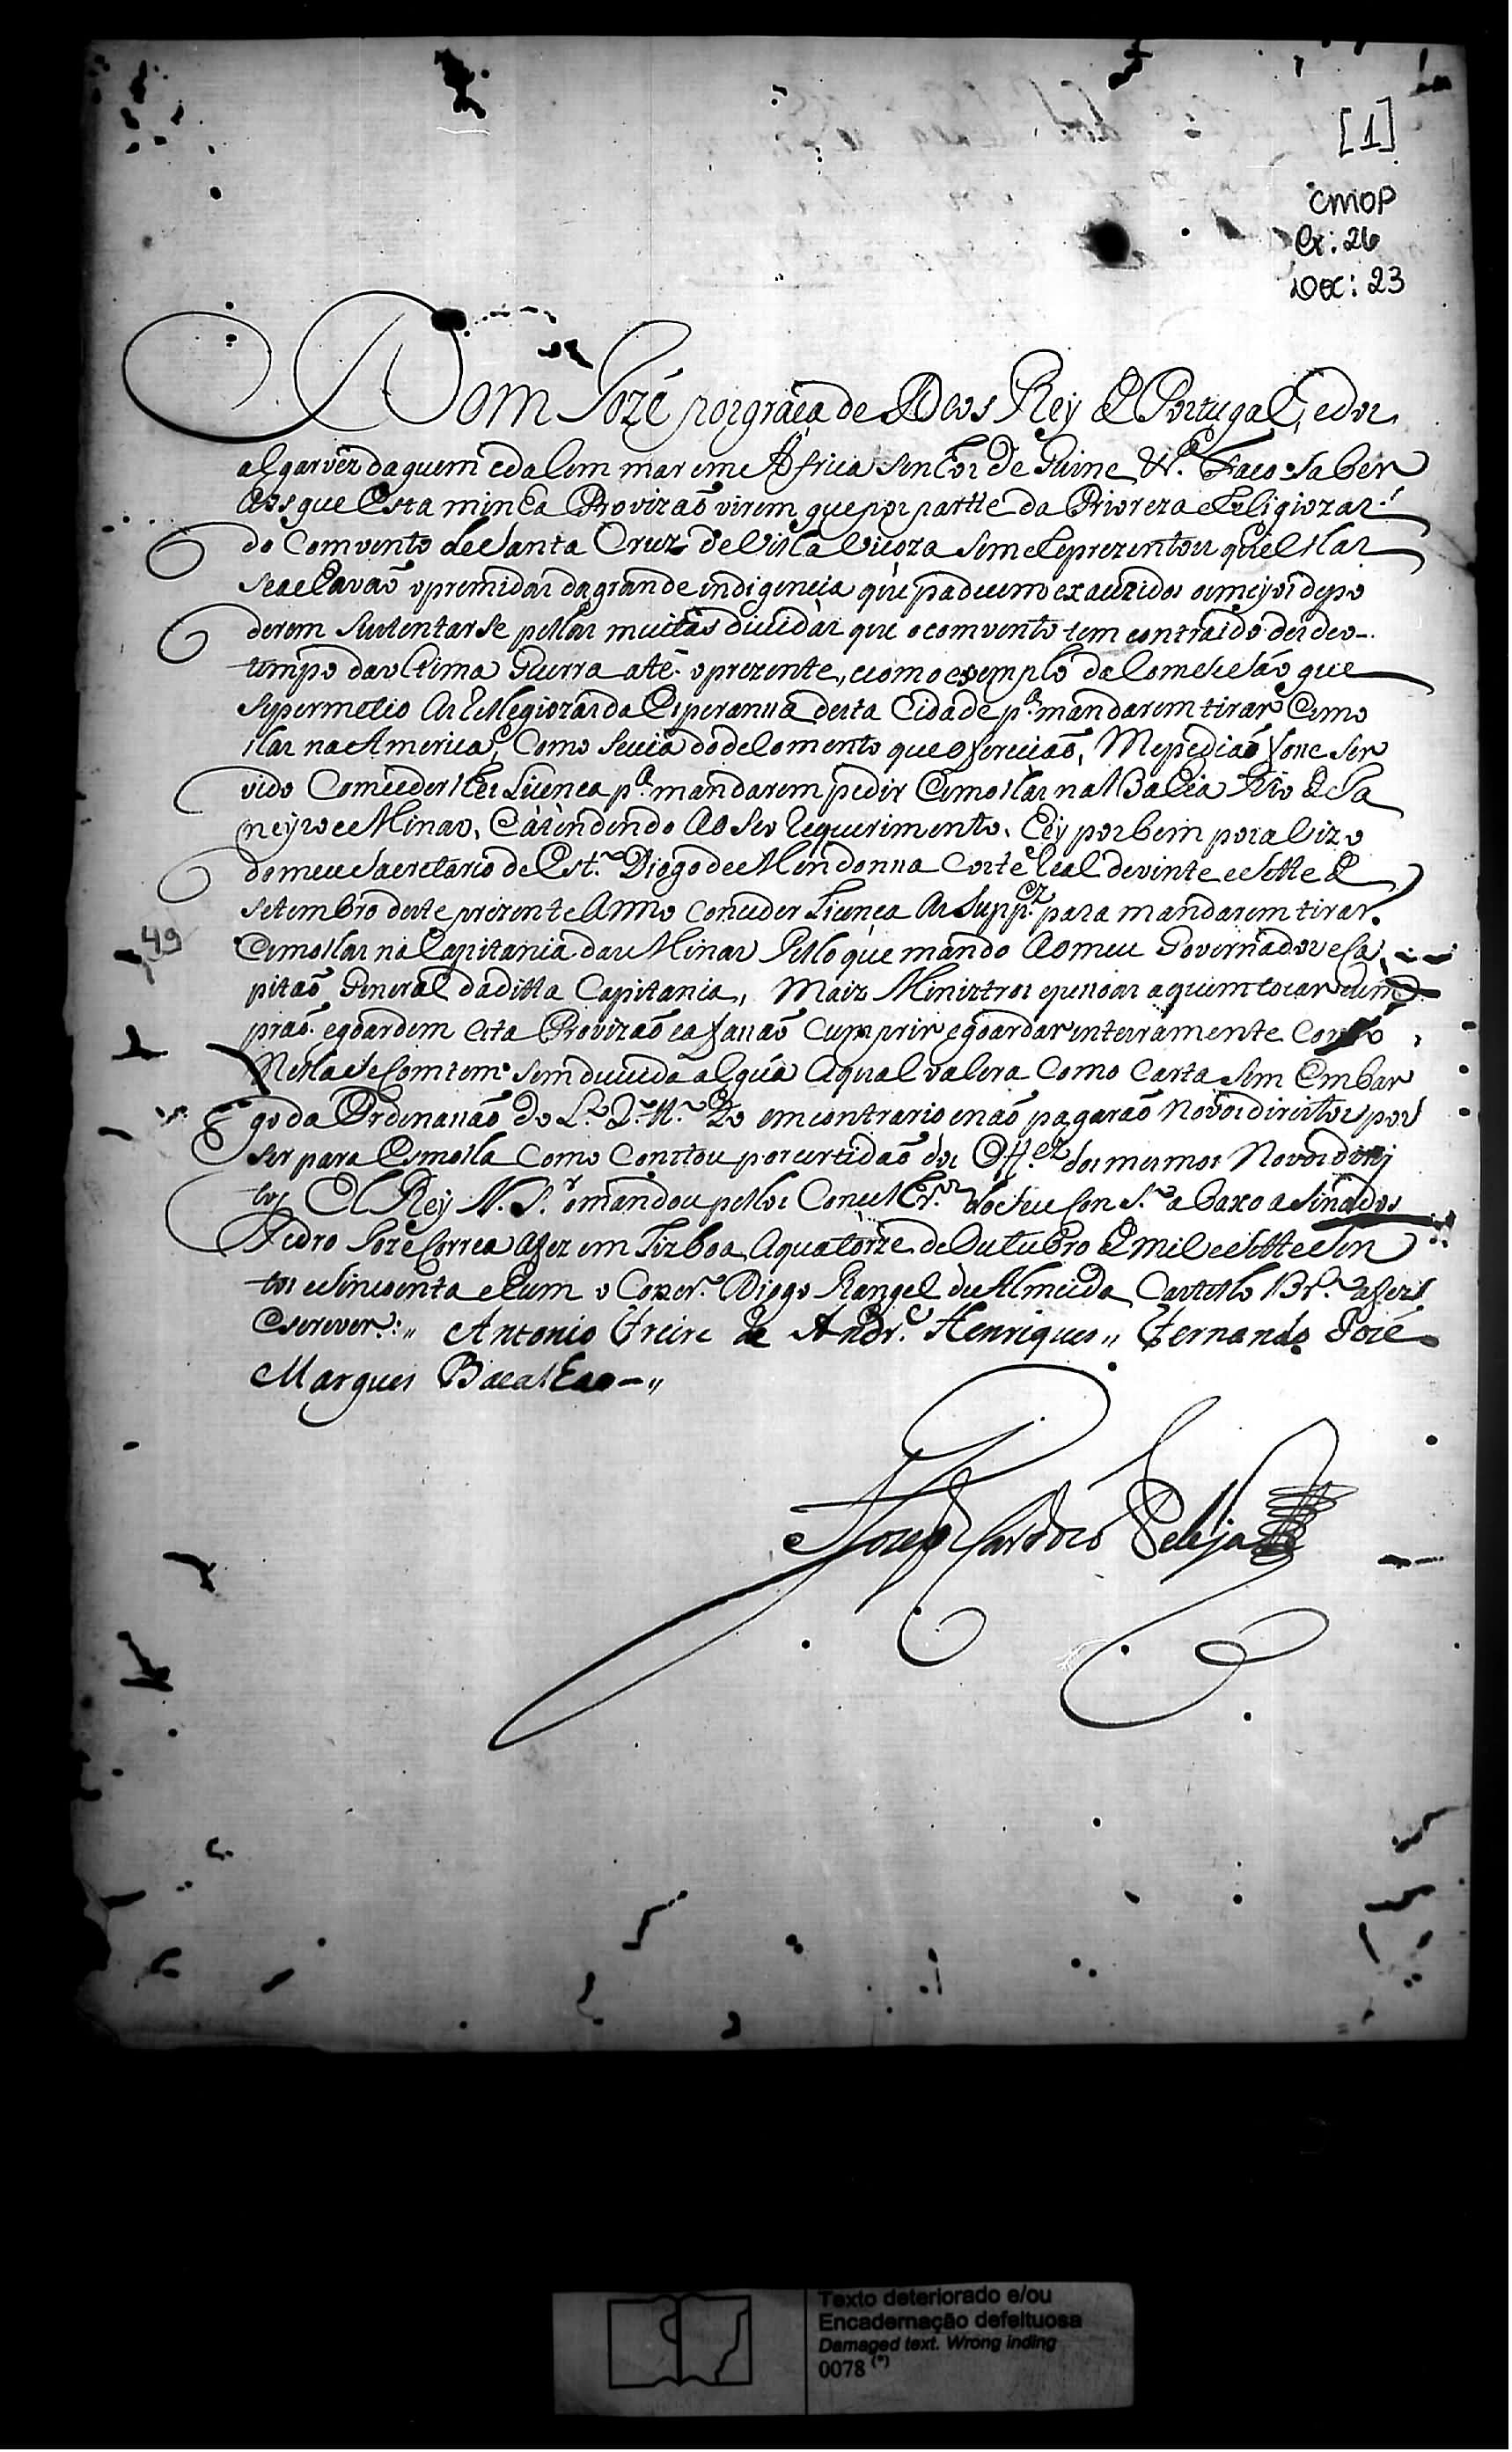 [1]
CMOP
Cx: 26
Doc: 23
Dom Jozé porgraça de Deos Rey de Portugal, edos
algarvez daquem edalem mar em Africa Senhor de Guine &.ª Faço Saber
aos que esta minha Provizaõ virem que por partte da Prioreza eReligiozas
do Comvento de Santa Cruz de Villa Viçoza Seme Reprezentou que ellas
Seachavaõ opremidas dagrande indigencia que padecem exauridos os meyos depo
derem Sustentarse pellas muitas duvidas que o comvento tem contraido desdeo
tempo daultima Guerra athé o prezente, ecomo exemplo da Comcessaõ que
Sepermetio as Rellegiozas da Esperanssa desta Cidade p.ª mandarem tirar esmo
llas na America, Como Sevia do documento que offereciaõ, Mepediaõ fosse Ser
vido Comceder lhes Licença p.ª mandarem pedir esmollas na Bahia Rio de Ja
neyro e Minas, e atendendo ao Seo Requerimento, Hey por bem por avizo
do meu Sacretario de Est.º Diogo de Mendonssa Corte Real de vinte e Sette de
Setembro deste prezente anno conceder Licença as Supp.es para mandarem tirar
49
esmollas na Capitania das Minas Pello que mando ao meu Governador e Ca
pitaõ General da ditta Capitania, Maiz Ministros epessoas aquem tocar cum
praõ egoardem esta Provizaõ ea façaõ Cumprir egoardar inteiramente Como
Nella seComtem sem duvida algũa aqual valera Como Carta sem embar
go da Ordenaçaõ do L.º 2.º tt.º 40 em contrario enaõ pagaraõ Novos direitos por
ser para esmolla Como Constou por certidaõ dos Off.es dos mesmos Novos direi
tos El Rey N. S.r o mandou pellos Concelhr.os do Seu Con S.º abaxo asinados
Pedro Jozé Correa afez em Lizboa aquatorze de Outubro de mil e Sette Sen
tos eSincoenta ehum o Conser.º Diogo Rangel de Almeida Castello Br.º afez
escrever.: " Antonio Freire de Andr.e Henriques " Fernando Jozé
Marques Bacalhao - "
Jozeph Cardozo Peleja
Texto deteriorado e/ou
Encadernação defeituosa
Damaged text. Wrong inding
0078 (*)